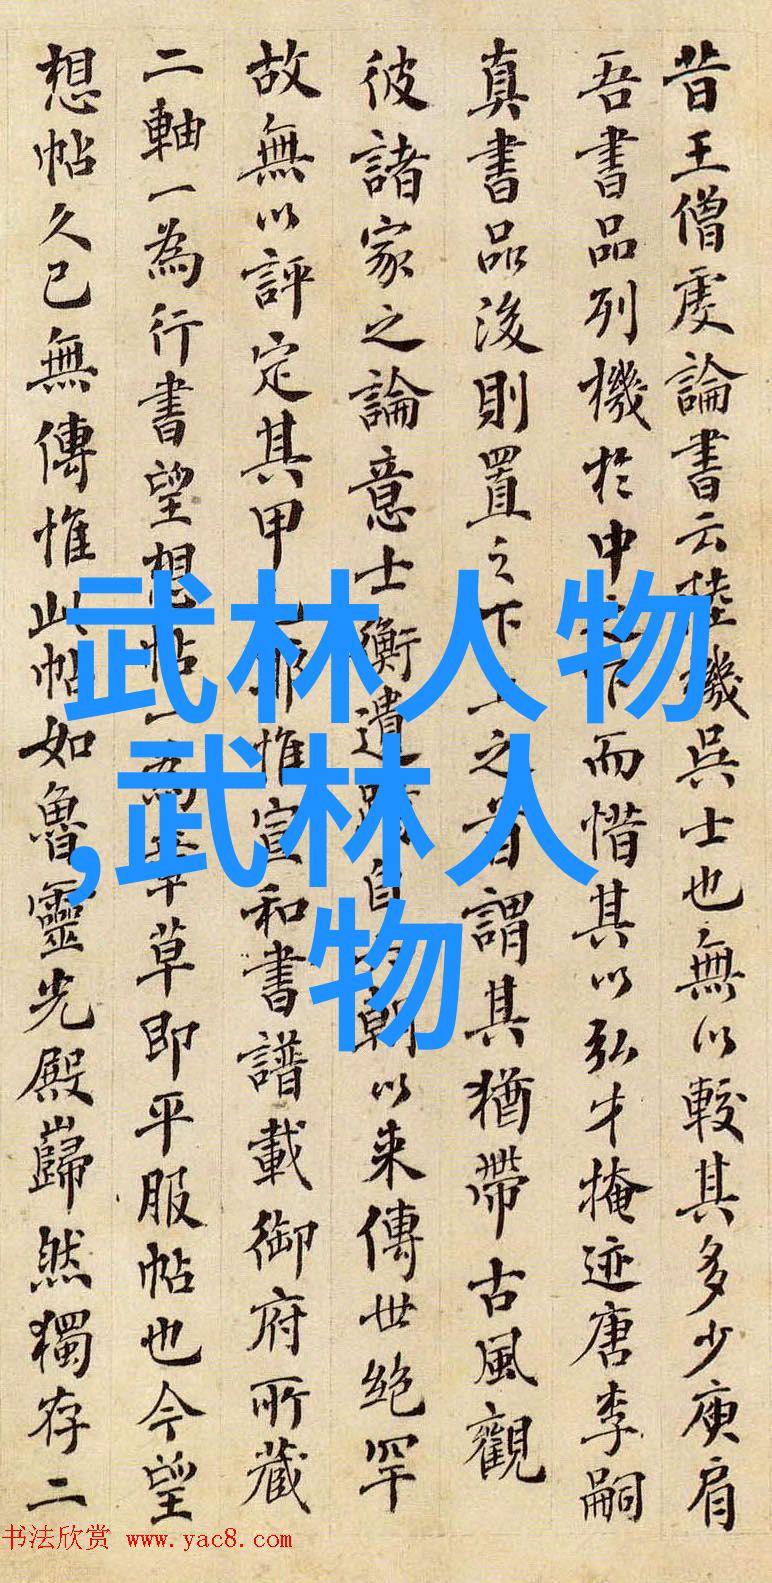 昔王僧虔論書云陸機吳士也無以較其多少庾肩
吾書品列機於中之下而惜其以弘才掩迹唐李嗣
真書品後則置之下上之首謂其猶帶古風觀
彼諸家之論意士衡遺自朝以来傳世絶罕
故無以評定其甲惟宣和書譜載御府所藏
二軸一為行書望想帖一為章草即平服帖也今望
想帖久已無傳惟此帖如魯靈光殿巋然獨存二
武林人物
,武林人
物
书法欣赏 www.yac8.com